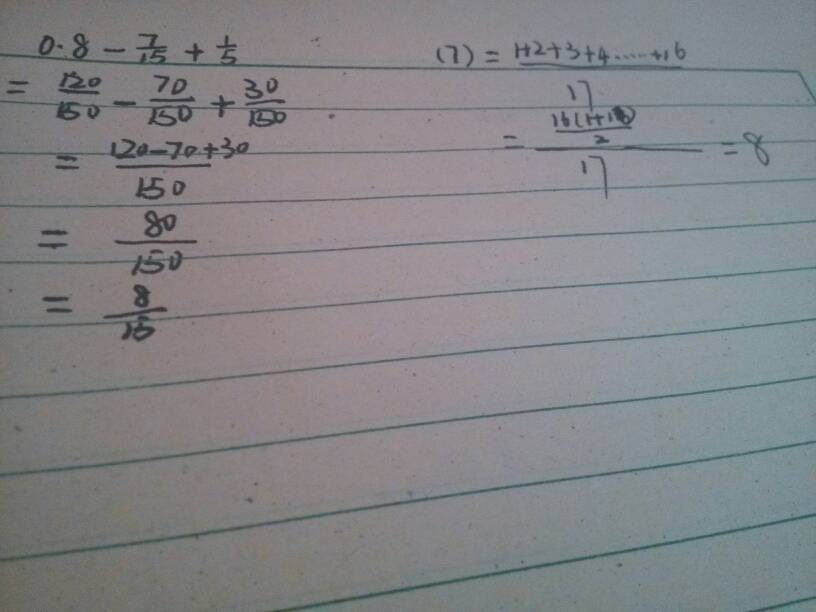 0.8 - 7/15 + 1/5
= 120/150 - 70/150 + 30/150
= (120-70+30)/150
= 80/150
= 8/15
(7) = (1+2+3+4……+16)/17
= (16(1+16)/2)/17 = 8